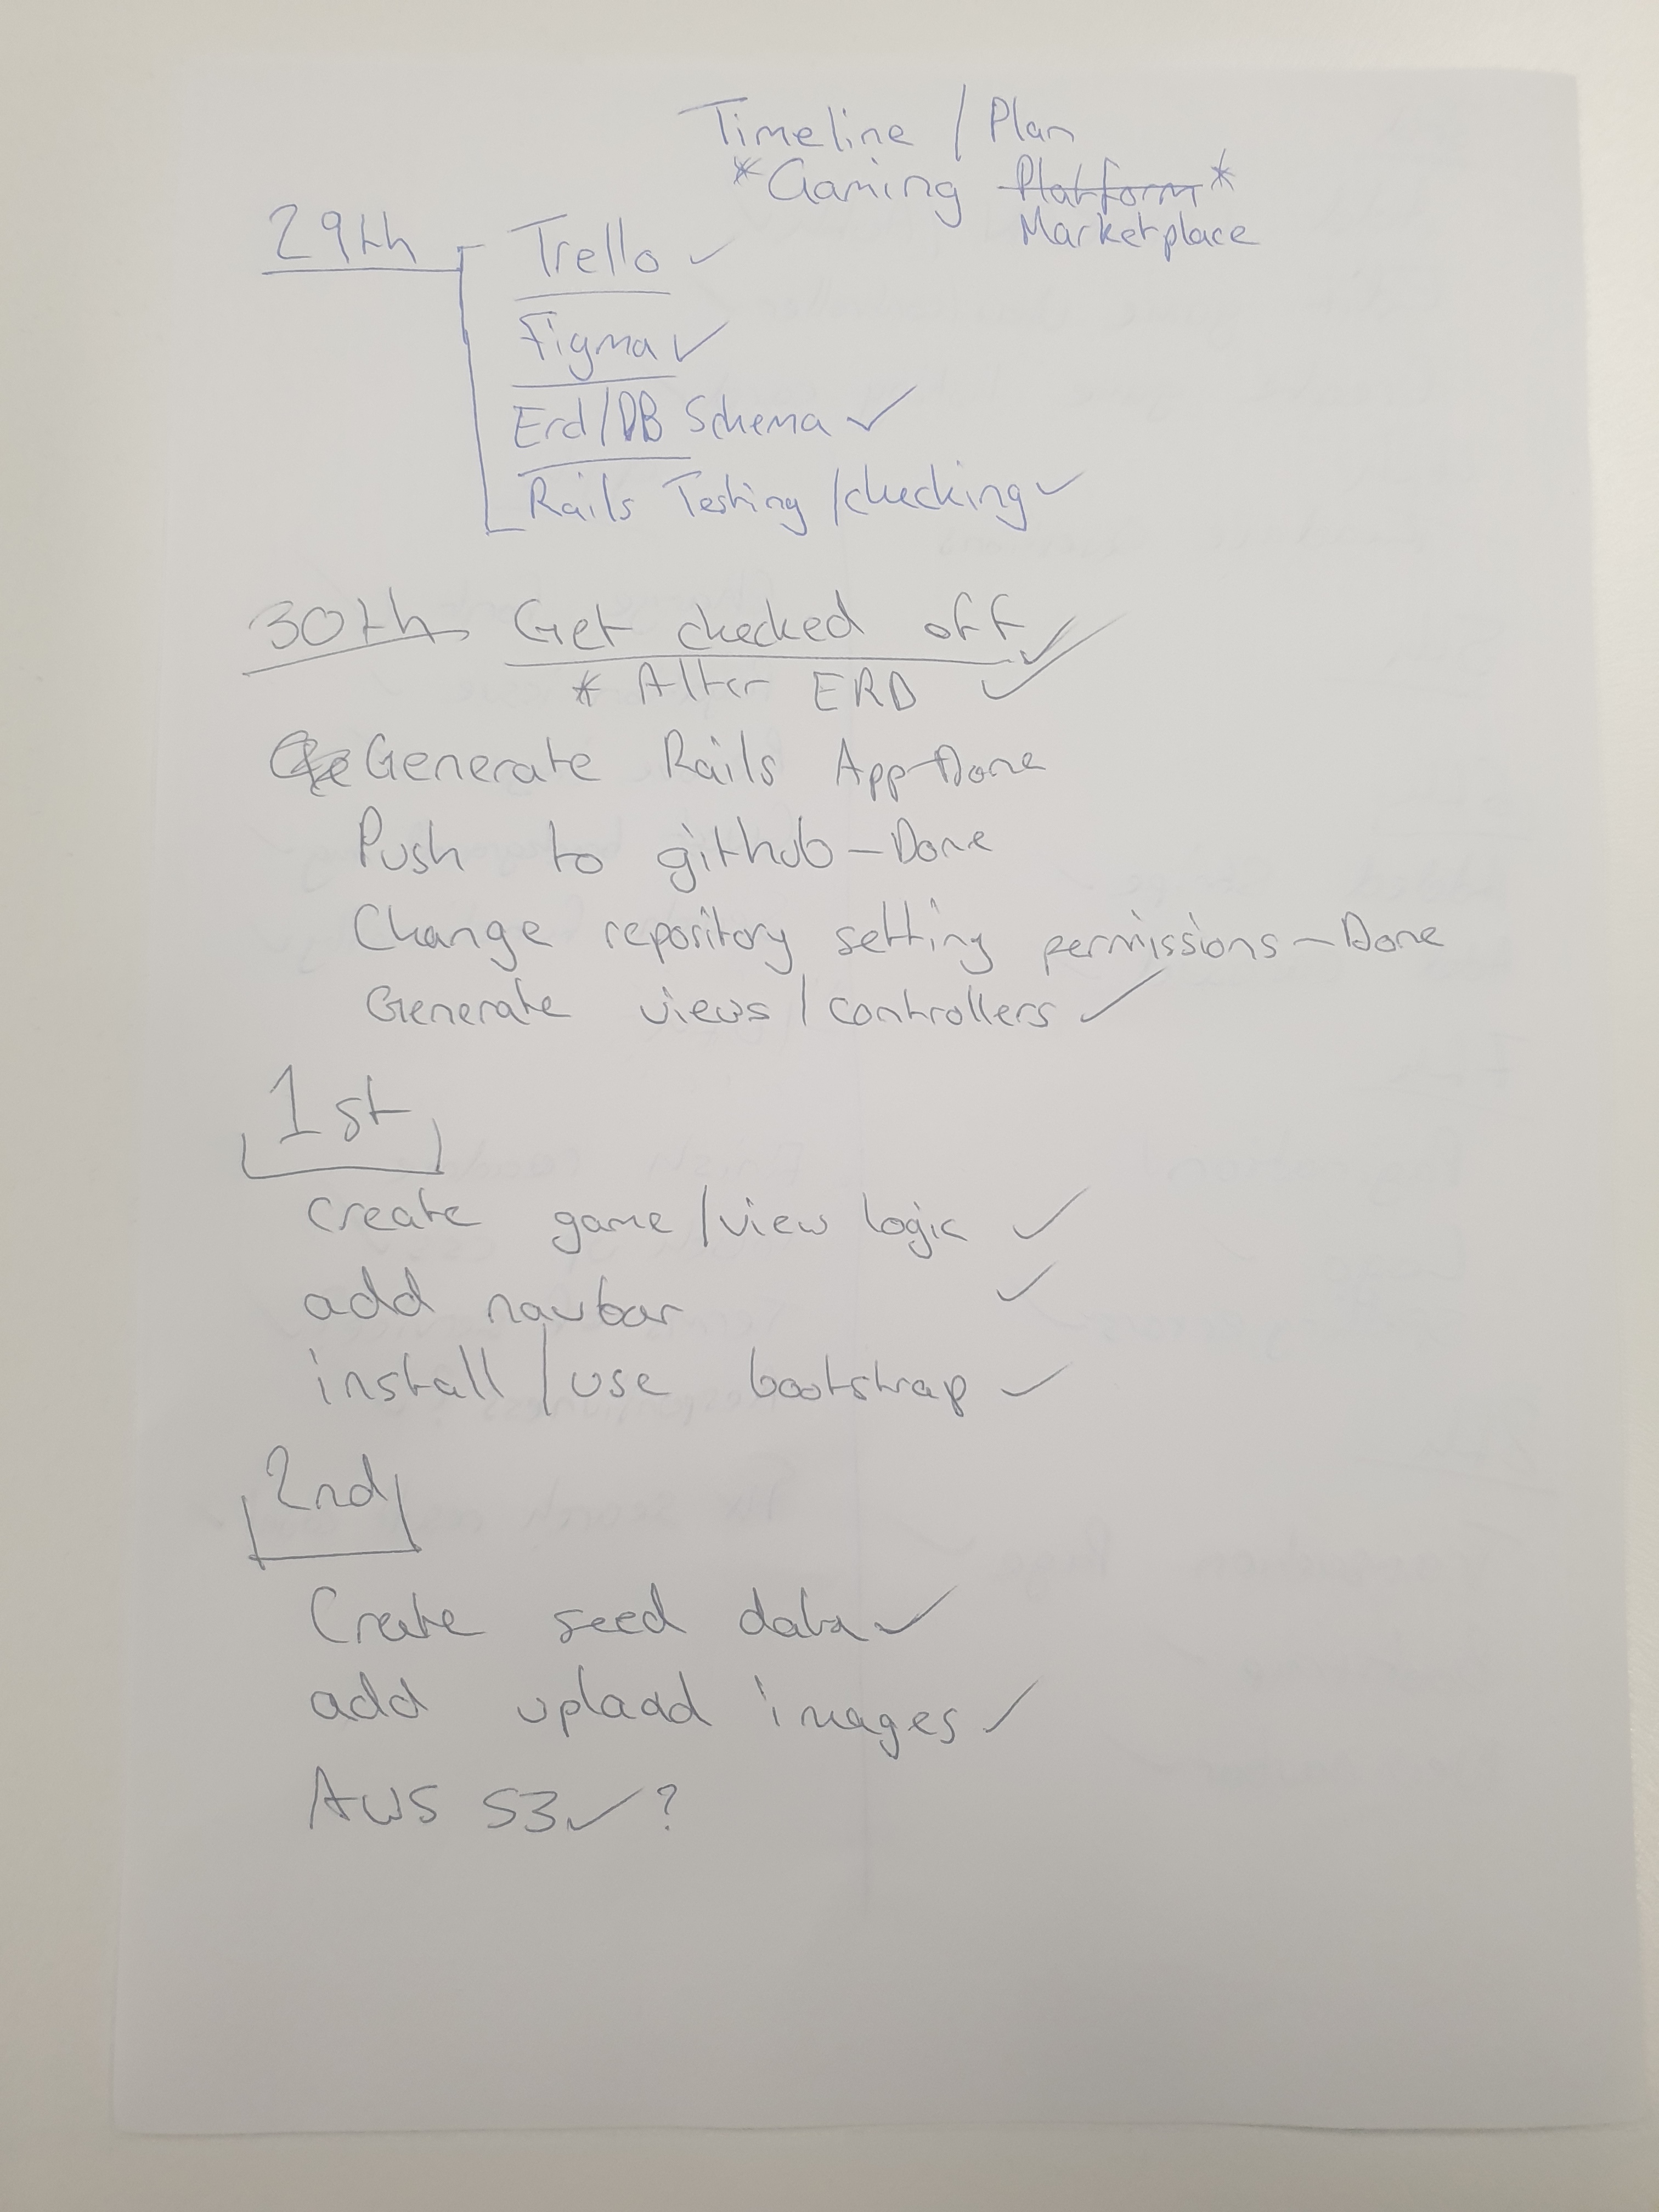 Timeline / Plan
*Gaming Platform*
Marketplace
29th Trello ✓
Figma ✓
Erd/DB Schema ✓
Rails Testing /checking ✓
30th Get checked off ✓
* Alter ERD ✓
Generate Rails App-Done
Push to github - Done
Change repository setting permissions - Done
Generate views / controllers ✓
1st
create game /view logic ✓
add navbar ✓
install / use bootstrap ✓
2nd
Create seed data ✓
add upladd images ✓
AWS S3 ✓ ?